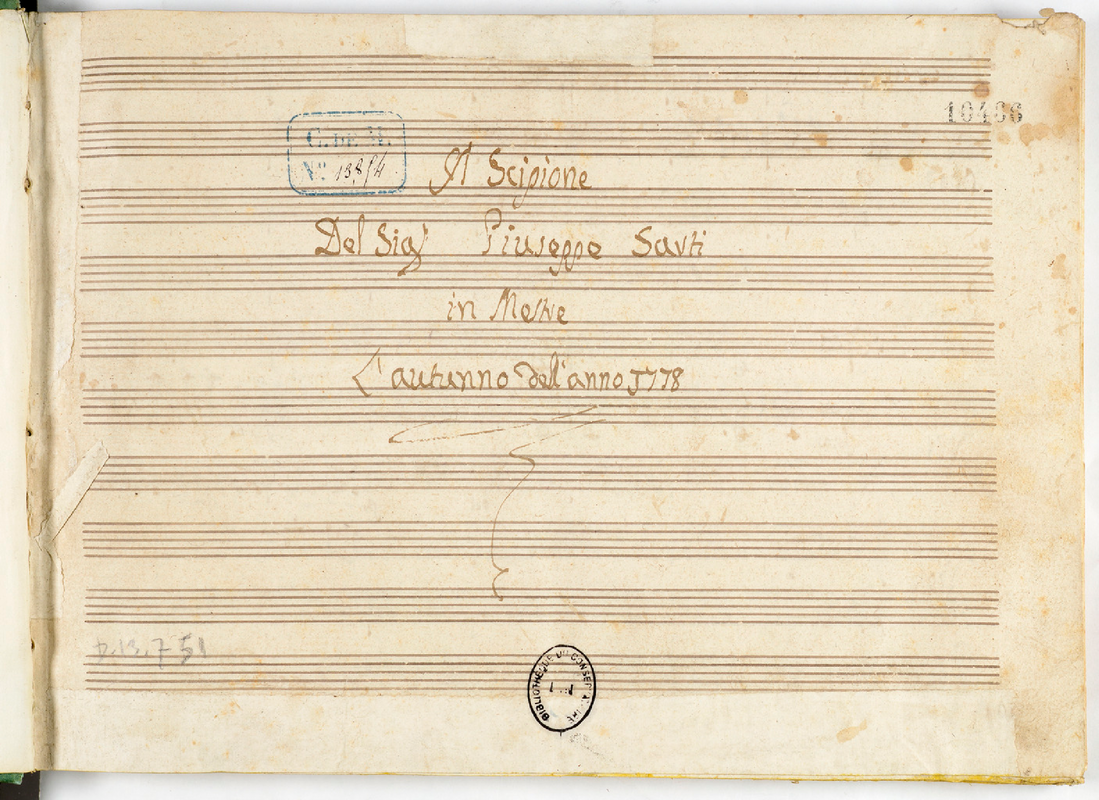 10466
C. DE M.
No. 13894
Il Scipione
Del Sigr Giuseppe Sarti
in Mestre
L'autunno dell'anno 1778
D.13.751
BIBLIOTHÈQUE DU CONSERVATOIRE